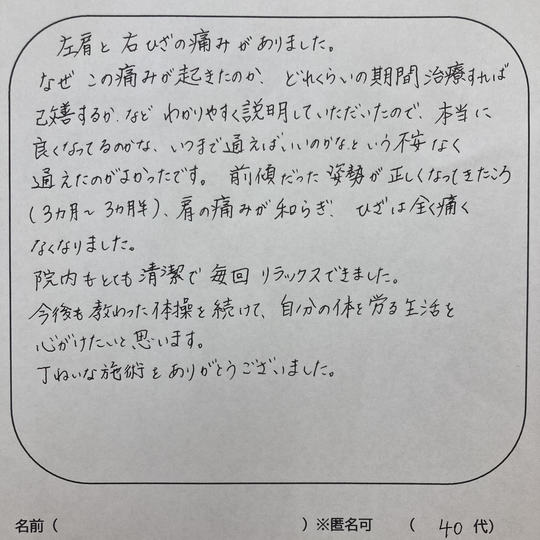 左肩と右ひざの痛みがありました。
なぜこの痛みが起きたのか、どれくらいの期間治療すれば
改善するか、など わかりやすく説明していただいたので、本当に
良くなってるのかな、いつまで通えばいいのかなという不安なく
通えたのがよかったです。前傾だった姿勢が正しくなってきたころ
(3ヵ月～3ヵ月半)、肩の痛みが和らぎ、ひざは全く痛く
なくなりました。
院内もとても清潔で毎回リラックスできました。
今後も教わった体操を続けて、自分の体を労る生活を
心がけたいと思います。
丁ねいな施術をありがとうございました。
名前( )※匿名可 ( 40代)